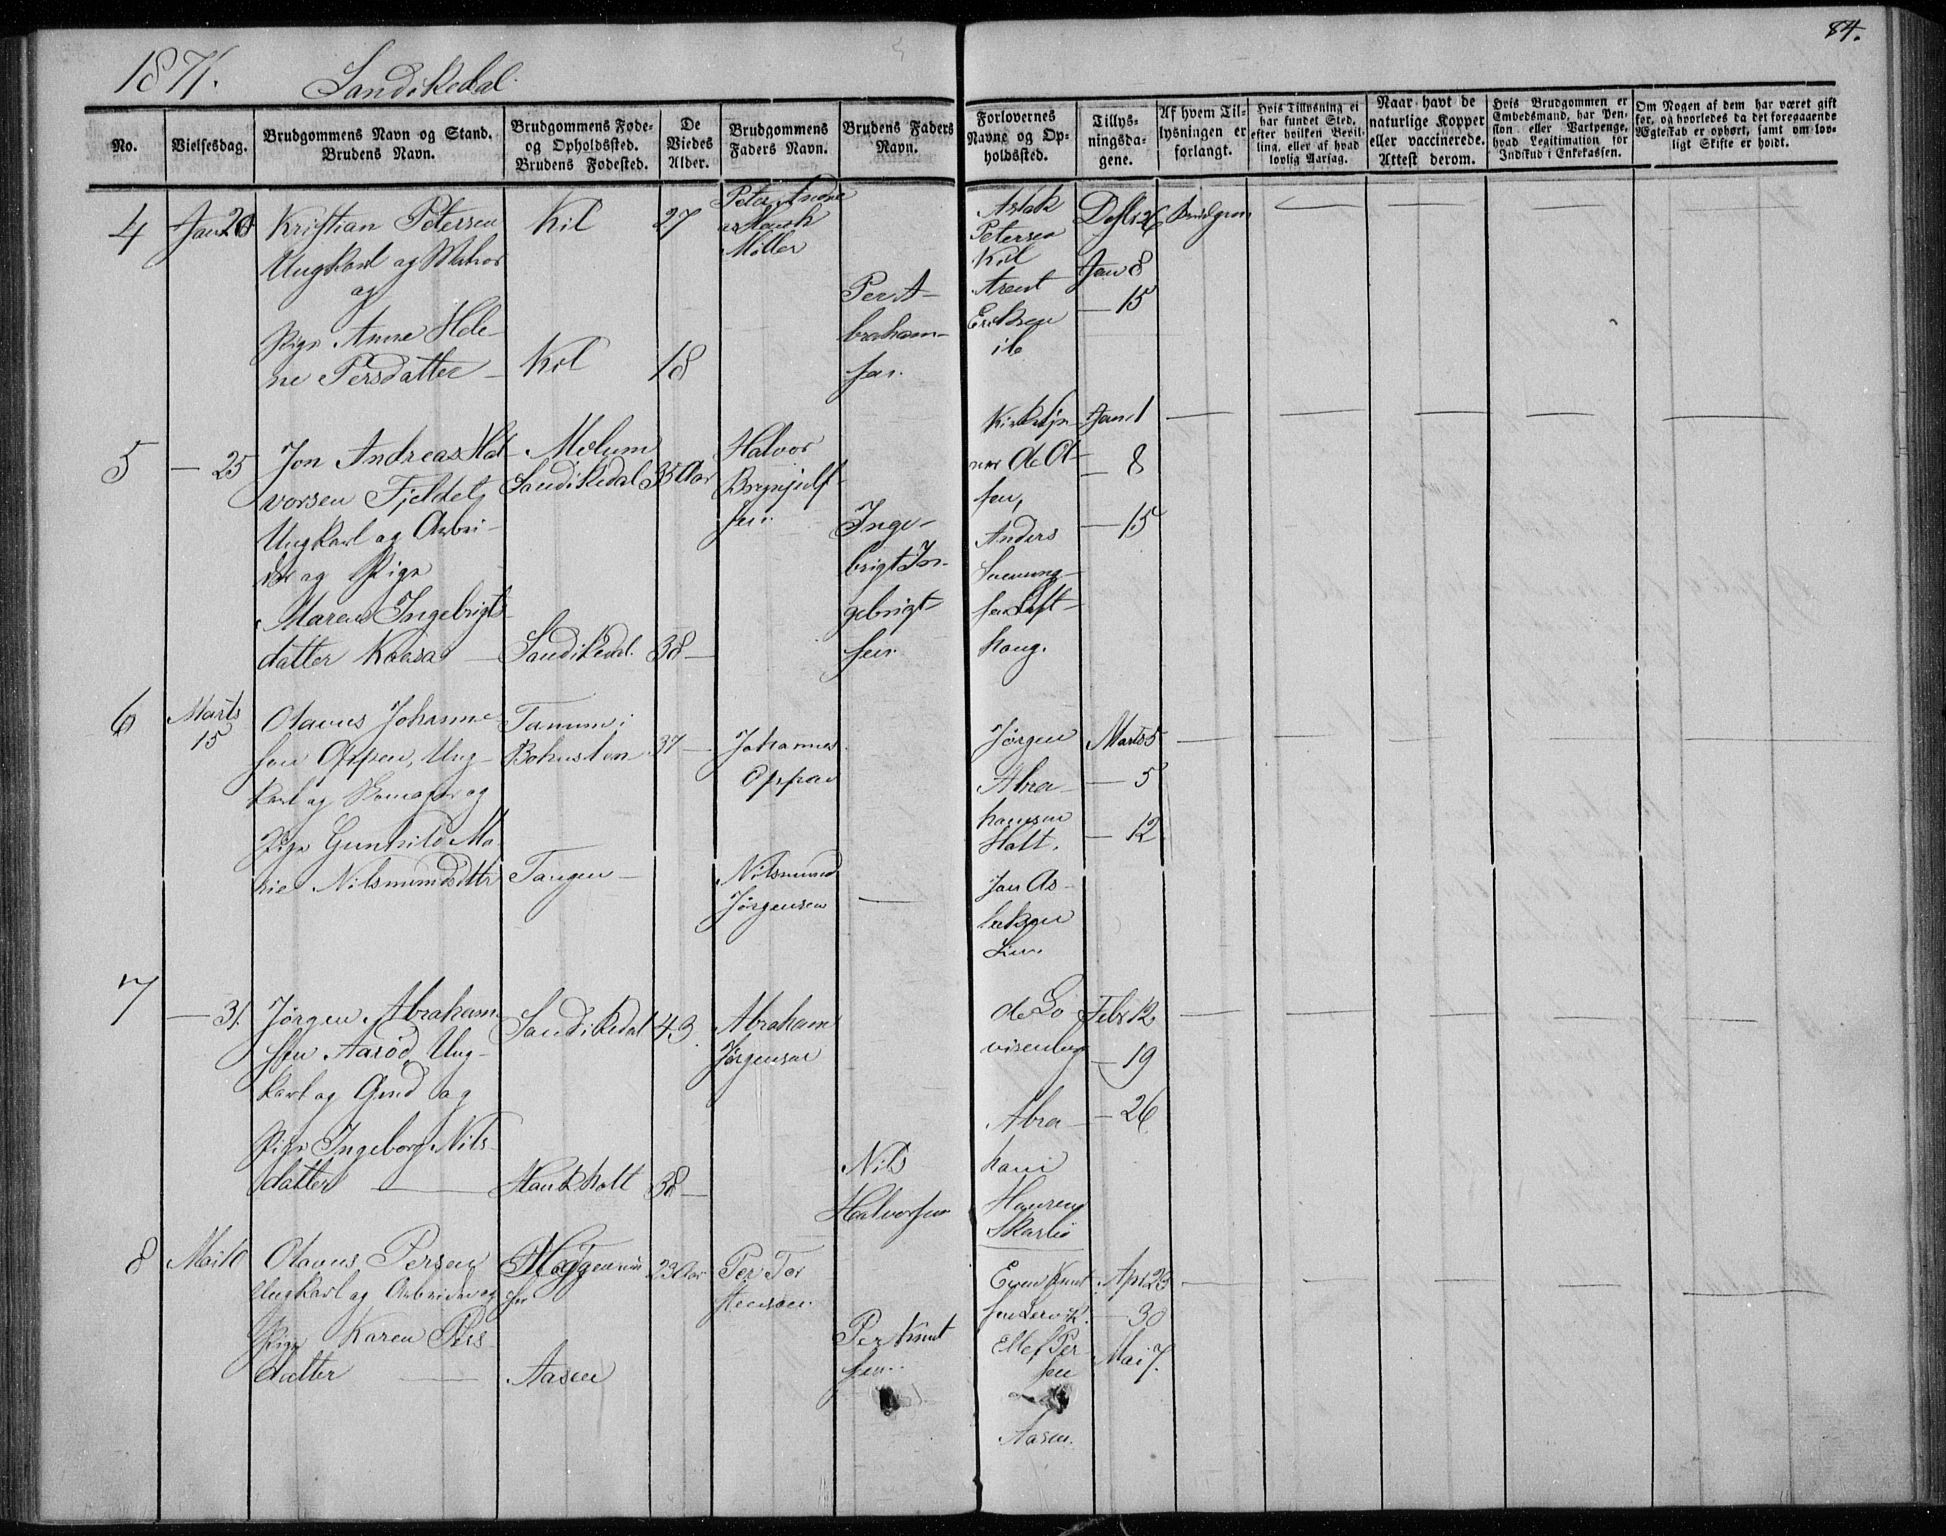 84.
1871. Sandikedal.
No.
Vielsesdag.
Brudgommens Navn og Stand.
Brudens Navn.
Brudgommens Føde-
og Opholdssted.
Brudens Fødested.
De
Viedes
Alder.
Brudgommens
Faders Navn.
Brudens Faders
Navn.
Forlovernes
Navne og Op-
holdssted.
Tillys-
ningsda-
gene.
Af hvem Til-
lysningen er
forlangt.
Hvis Tillysning ei
har fundet Sted,
efter hvilken Bevil-
ling, eller af hvad
lovlig Aarsag.
Naar havt de
naturlige Kopper
eller vaccinerede.
Attest derom.
Hvis Brudgommen er
Embedsmand, har Pen-
sion eller Vartpenge,
hvad Legitimation for
Indskud i Enkekassen.
Om Nogen af dem har været gift
før, og hvorledes da det foregaaende
Ægteskab er ophørt, samt om lov-
ligt Skifte er holdt.
4
Jan 20
Kristian Petersen
Ungkarl og
og
Pige Anne Hele-
ne Persdatter
Kil
Kil
27
18
Peter Andre
Møller
Per A-
braham-
sen.
Aslak
Petersen
Kil
Arent
Eriksen
ib
Jan 8
— 15
5
— 25
Jon Andreas Hal-
vorsen Fjeldet,
Ungkarl og Arbei-
der og Pige
Maren Ingebrigts-
datter Kaasa
Melum
Sandikedal
Sandikedal.
35 Aar
38 —
Halvor
Brynjulf-
sen.
Inge-
brigt In-
gebrigt-
sen.
Kirketje-
ner O. Ol-
sen,
Anders
haug.
Jan. 1
— 8
— 15
6
Marts
15
Olaus Johanne-
sen Oppen, Ung-
karl og Skomager og
Pige Gunhild Ma-
rie Nilsmundsdttr
Tanum i
Bohuslen
Tangen —
37 —
Johannes
Oppen
Nilsmund
Jørgensen
—
Jørgen
Abra-
hamsen
Holt.
Jan As-
laksen
Lien
Marts 5
— 5
— 12
7
— 31.
Jørgen Abraham-
sen Aarød, Ung-
karl og Grd og
Pige Ingeborg Nils-
datter —
Sandikedal
Haukholt
43
38 —
Abraham
Jørgensen
Nils
Halvorsen
Abra-
ham
Hansen
Febr 12
— 19
— 26
8
Mai 10
Olaus Persen
Ungkarl og Arbeider og
Pige Karen Pers-
datter —
Aasen
23 Aar
Per Tor
stensen.
Per Knut
sen.
Even Knut
sen
Ellef Per-
sen
Aasen.
Apr. 23
— 30
Mai 7.